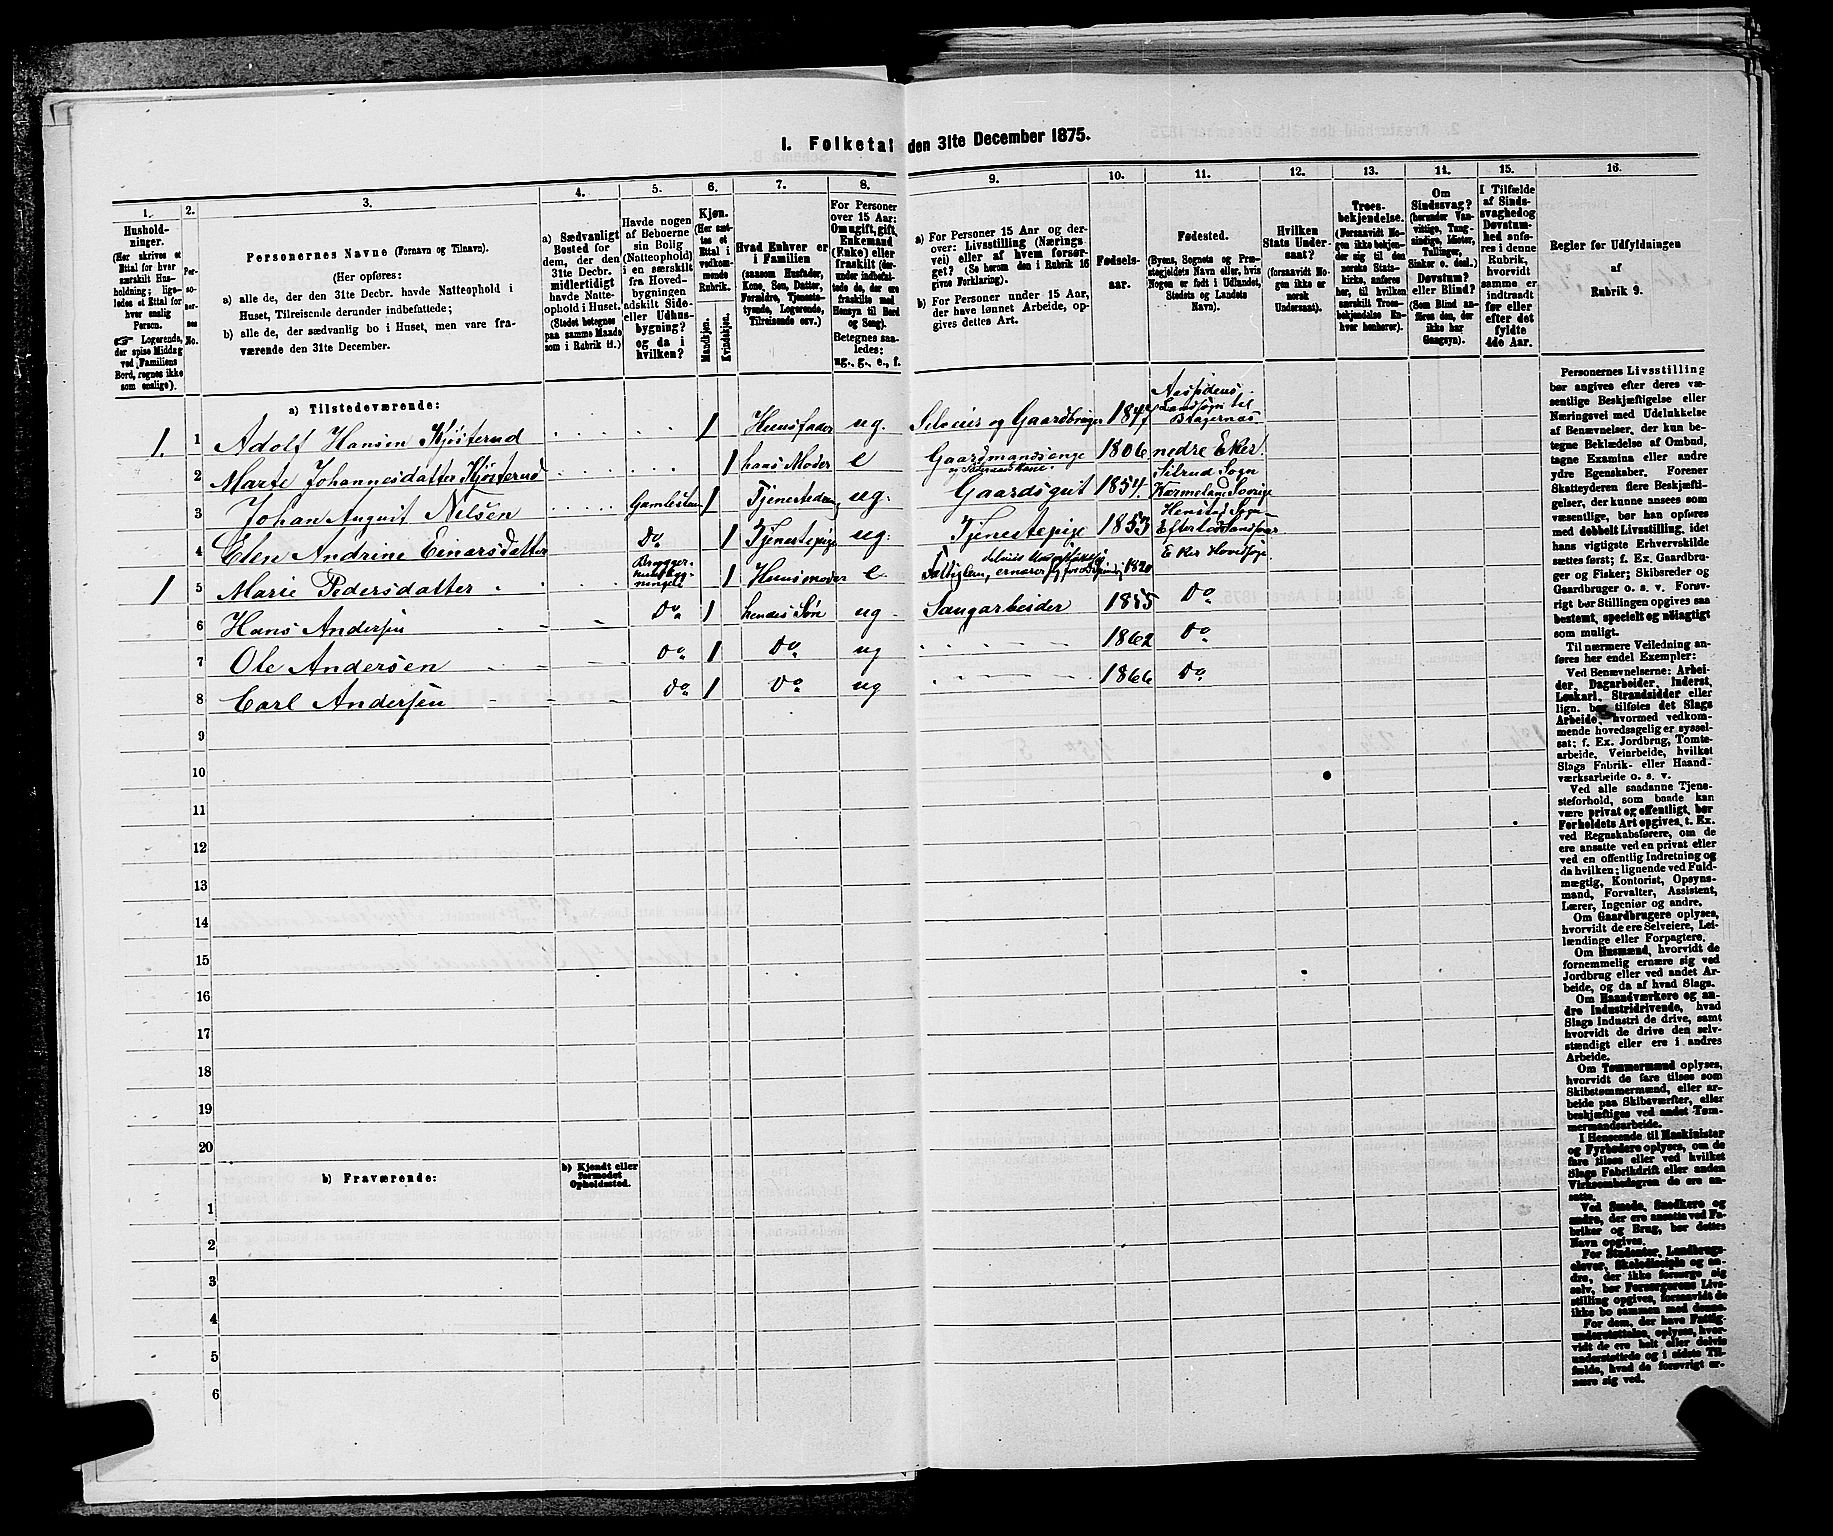 I. Folketal den 31te December 1875.
1.
2.
3.
4.
5.
6.
7.
8.
9.
10.
11.
12.
13.
14.
15.
16.
Hushold-
ninger.
(Her skrives et
Ettal for hver
særskilt Hus-
holdning; lige-
ledes et Ettal for
hver enslig
Person.
☞ Logerende,
der spise Middag
ved Familiens
Bord, regnes ikke
som enslige).
Per-
so-
ner-
nes
No.
Personernes Navne (Fornavn og Tilnavn).
(Her opføres:
a) alle de, der den 31te Decbr. havde Natteophold i
Huset, Tilreisende derunder indbefattede;
b) alle de, der sædvanlig bo i Huset, men vare fra-
værende den 31te December.
a) Sædvanligt
Bosted for
dem, der den
31te Decbr.
midlertidigt
havde Natte-
ophold i Huset.
(Stedet betegnes
paa samme Maade
som i Rubrik 11.)
Havde nogen
af Beboerne
sin Bolig
(Natteophold)
i en særskilt
fra Hoved-
bygningen
adskilt Side-
eller Udhus-
bygning?
og da i
hvilken?
Kjøn.
(Her sæt-
tes et
Ettal i
vedkom-
mende
Rubrik.
Mandkjøn.
Kvindekjøn.
Hvad Enhver er
i Familien
(saasom Husfader,
Kone, Søn, Datter,
Forældre, Tjeneste-
tyende, Logerende,
Tilreisende osv.)
For Personer
over 15 Aar:
Om ugift, gift,
Enkemand
(Enke) eller
fraskilt (der-
under indbefat-
tede de, der ere
fraskilte med
Hensyn til Bord
og Seng).
Betegnes saa-
ledes:
ug., g., e., f.
a) For Personer 15 Aar og der-
over: Livsstilling (Nærings-
vei) eller af hvem forsør-
get? (Se herom den i Rubrik 16
givne Forklaring).
b) For Personer under 15 Aar,
der have lønnet Arbeide, op-
gives dettes Art.
Fødsels-
aar.
Fødested.
(Byens, Sognets og Præ-
stegjeldets Navn eller, hvis
Nogen er født i Udlandet,
Stedets og Landets
Navn).
Hvilken
Stats Under-
saat?
(forsaavidt No-
gen ikke er
norsk
Undersaat).
Troes-
bekjendelse.
(Forsaavidt No-
gen ikke bekjen-
der sig til den
norske Stats-
kirke, anføres
her, til hvilken
særskilt Troes-
bekjendelse En-
hver henhører).
Om
Sindssvag?
(herunder Van-
vittige, Tung-
sindige, Idioter,
Tullinger,
Sinker o. desl.)
Døvstum?
eller Blind?
(Som Blind an-
føres den, der
ikke har
Gangsyn).
I Tilfælde
af Sinds-
svaghed og
Døvstum-
hed anfø-
res i denne
Rubrik,
hvorvidt
samme er
indtraadt
før eller
efter det
fyldte
4de Aar.
Regler for Udfyldningen
af
Rubrik 9.
a) Tilstedeværende:
1. 1 Adolf Hansen Kjøsterud 1 Huusfader ug. Selveier og Gaardbruger 1847 Landsogn til Bragernæs
2 Marte Johannesdatter Kjøsterud 1 hans Moder e Gaardmandsenge 1806 nedre Eker
3 Johan August Nelsen 1 ug. Gaardsgut 1854. Sogn Sverige
4 Elen Andrine Einarsdatter Do 1 Tjenestepige ug. Tjenestepige 1853 Sogn
1 5 Marie Pedersdatter 1 Huusmoder e 1820 Eker Hovedsogn
6 Hans Andersen Do 1 hendes Søn ug. Saugarbeider 1855 Do
7 Ole Andersen Do 1 Do ug 1862 Do
8 Carl Andersen Do 1 Do ug 1866 Do
9
10
11
12
13
14
15
16
17
18
19
20
b) Fraværende:
b) Kjendt eller
formodet
Opholdssted.
1
2
3
4
5
6
Personernes Livsstilling
bør angives efter deres væ-
sentlige Beskjæftigelse eller
Næringsvei med Udelukkelse
af Benævnelser, der kun be-
tegne Beklædelse af Ombud,
tagne Examina eller andre
ydre Egenskaber. Forener
Skatteyderen flere Beskjæfti-
gelser, der kunne ansees som
væsentlige, bør han opføres
med dobbelt Livsstilling, idet
hans vigtigste Erhvervskilde
sættes først; f. Ex. Gaardbru-
ger og Fisker; Skibsreder og
Gaardbruger o. s. v. Forøv-
rigt bør Stillingen opgives saa
bestemt, specielt og nøiagtigt
som muligt.
Til nærmere Veiledning an-
føres her endel Exempler:
Ved Benævnelserne: Arbei-
der, Dagarbeider, Inderst,
Løskarl, Strandsidder eller
lign. bør tilføies det Slags
Arbeide, hvormed vedkom-
mende hovedsagelig er syssel-
sat; f. Ex. Jordbrug, Tomte-
arbeide, Veiarbeide, hvilket
Slags Fabrik- eller Haand-
værksarbeide o. s. v.
Ved alle saadanne Tjene-
steforhold, som baade kan
være privat og offentligt, bør
Forholdets Art opgives, f. Ex.
ved Regnskabsførere, om de
ere ansatte ved en privat eller
ved en offentlig Indretning og
da hvilken; lignende ved Fuld-
mægtig, Kontorist, Opsyns-
mand, Forvalter, Assistent,
Lærer, Ingeniør og andre.
Om Gaardbrugere oplyses,
hvorvidt de ere Selveiere, Lei-
lændinge eller Forpagtere.
Om Husmænd, hvorvidt de
fornemmelig ernære sig ved
Jordbrug eller ved andet Ar-
beide, og da af hvad Slags.
Om Haandværkere og an-
dre Industridrivende, hvad
Slags Industri de drive, samt
hvorvidt de drive den selv-
stændigt eller ere i andres
Arbeide.
Om Tømmermænd oplyses,
hvorvidt de fare tilsøs som
Skibstømmermænd, eller ar-
beide paa Skibsværfter, eller
beskjæftiges ved andet Tøm-
mermandsarbeide.
I Henseende til Maskinister
og Fyrbødere oplyses, om de
fare tilsøs eller ved hvilket
Slags Fabrikdrift eller anden
Virksomhedsgren de ere an-
satte.
Ved Smede, Snedkere og
andre, der ere ansatte ved Fa-
briker og Brug, bør dettes
Navn opgives.
For Studenter, Landbrugs-
elever, Skoledisciple og an-
dre, der ikke forsørge sig
selv, bør Forsørgerens Livs-
stilling opgives, forsaavidt de
ikke bo sammen med denne.
For dem, der have Fattig-
understøttelse, oplyses, hvor-
vidt de ere helt eller delvis
understøttede og i sidste Til-
fælde, hvad de forøvrigt er-
nære sig ved.